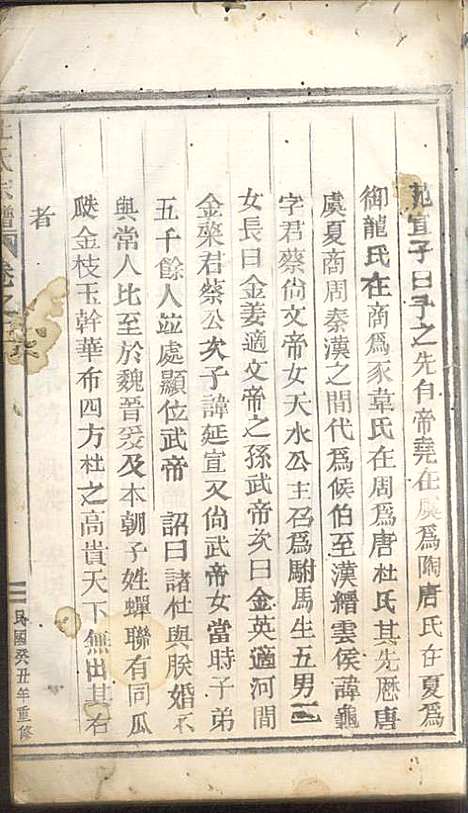 范宣子曰予之先自帝堯在虞爲陶唐氏在夏爲
御龍氏在商爲豕韋氏在周爲唐杜氏其先歷唐
虞夏商周秦漢之間代爲侯伯至漢縉雲侯諱龜
字君蔡尙文帝女天水公主召爲駙馬生五男二
女長曰金姜適文帝之孫武帝次曰金英適河間
金䓪君蔡公次子諱延宣又尙武帝女當時子弟
五千餘人竝處顯位武帝 詔曰諸杜與朕婚不
與常人比至於魏晉爰及本朝子姓蟬聯有同瓜
瓞金枝玉幹華布四方杜之高貴天下無出其右
者
杜氏宗譜 卷之
民國癸丑年重修